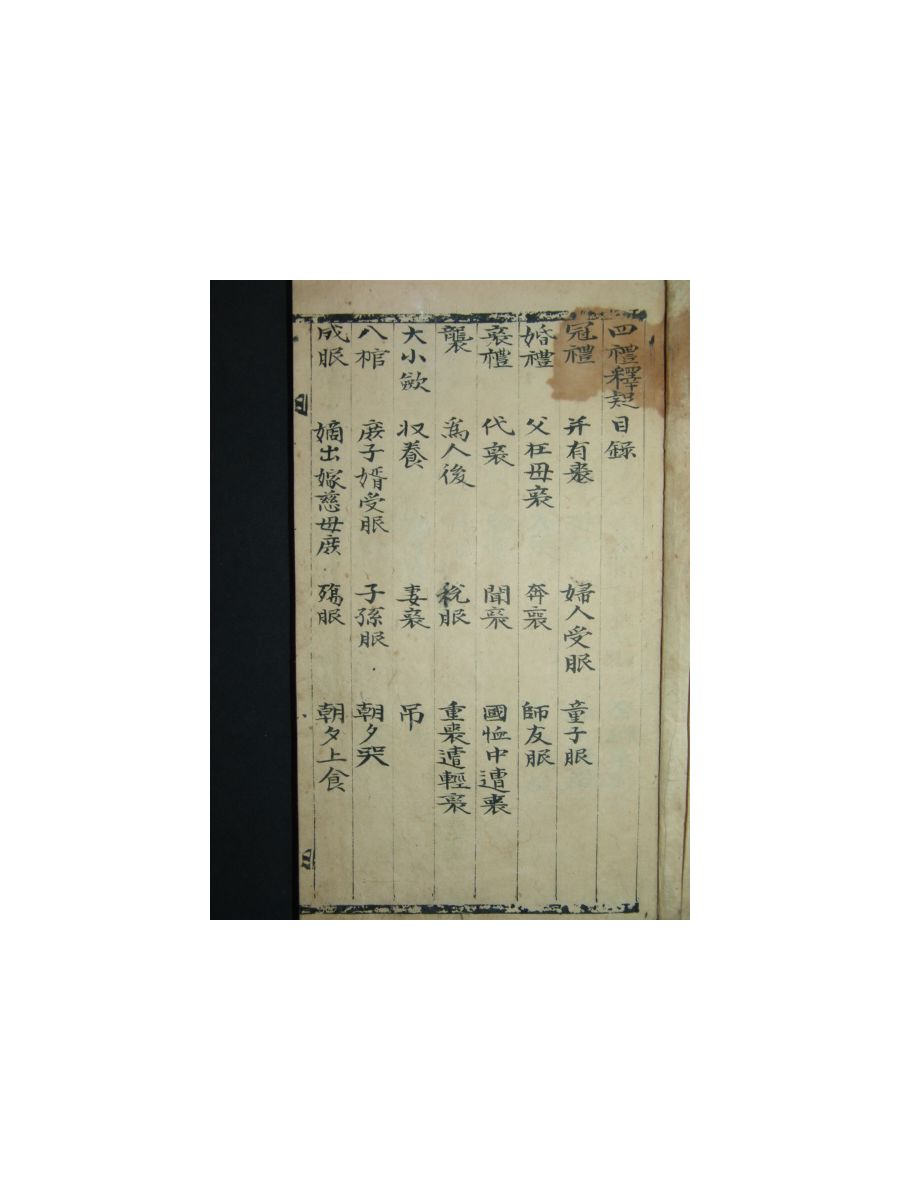 四禮釋疑目錄
冠禮 并有喪 婦人受服 童子服
婚禮 父在母喪 奔喪 師友服
喪禮 代喪 聞喪 國恤中遭喪
襲 爲人後 稅服 重喪遭輕喪
大小歛 収養 妻喪 吊
入棺 庶子婿受服 子孫服 朝夕哭
成服 嫡出嫁慈母庶 殤服 朝夕上食